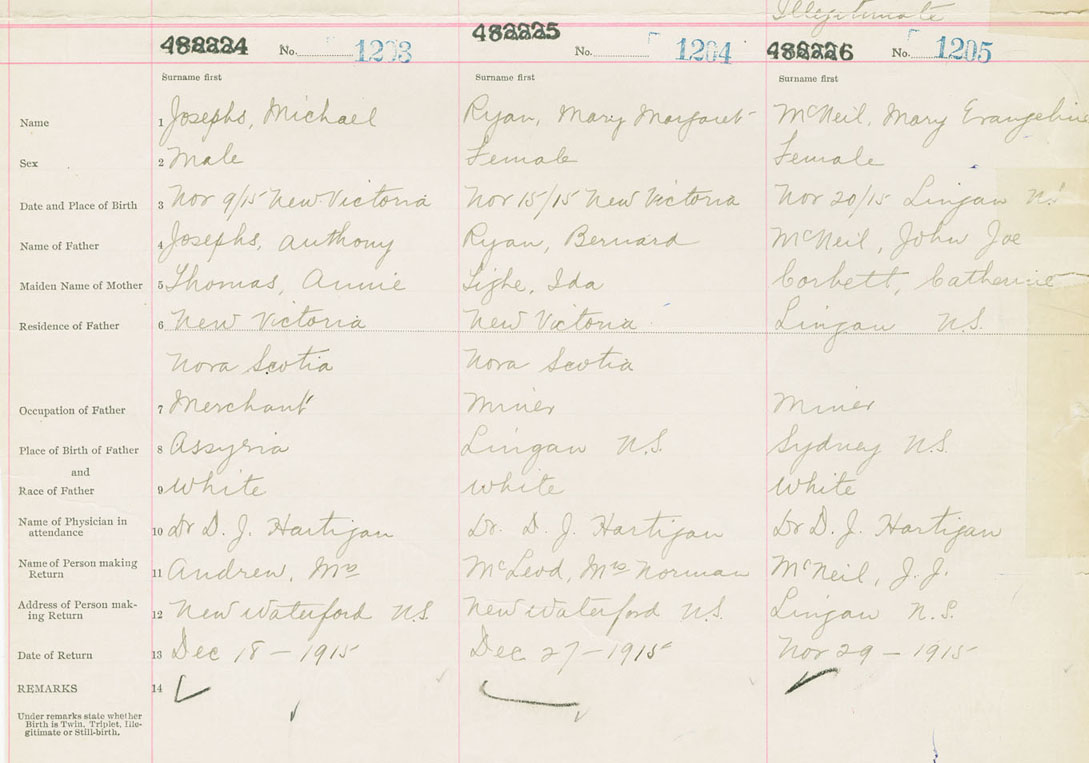 Illegitimate
482224 No. 1203 482225 No. 1204 482226 No. 1205
Surname first Surname first Surname first
Name 1 Josephs, Michael Ryan, Mary Margaret McNeil, Mary Evangeline
Sex 2 Male Female Female
Date and Place of Birth 3 Nov 9/15 New Victoria Nov 15/15 New Victoria Nov 20/15 Lingan N.S.
Name of Father 4 Josephs, Anthony Ryan, Bernard McNeil, John Joe
Maiden Name of Mother 5 Thomas, Annie Ida Corbett, Catherine
Residence of Father 6 New Victoria New Victoria Lingan N.S.
Nova Scotia Nova Scotia
Occupation of Father 7 Merchant Miner Miner
Place of Birth of Father 8 Assyria Lingan N.S. Sydney N.S.
and
Race of Father 9 White White White
Name of Physician in
attendance 10 Dr D. J. Hartigan Dr. D. J. Hartigan Dr D. J. Hartigan
Name of Person making
Return 11 Andrew, Mrs McLeod, Mrs Norman McNeil, J. J.
Address of Person mak-
ing Return 12 New Waterford N.S. New Waterford N.S. Lingan N.S.
Date of Return 13 Dec 18 - 1915 Dec 27 - 1915 Nov 29 - 1915
REMARKS 14
Under remarks state whether
Birth is Twin, Triplet, Ille-
gitimate or Still-birth.